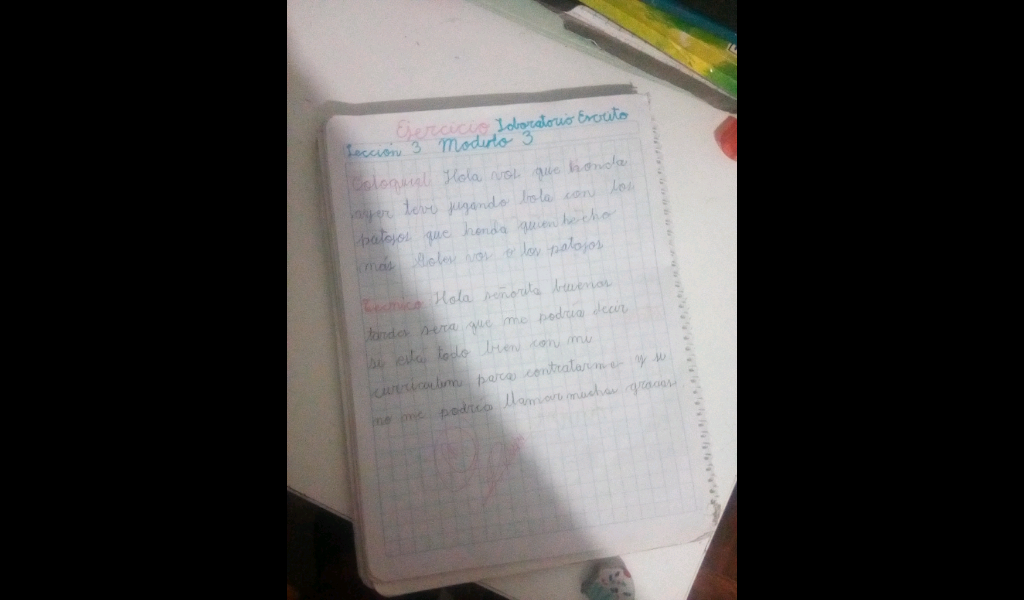 Ejercicio Laboratorio Escrito
Lección 3 Modulo 3
Coloquial Hola vos que honda
ayer tevi jugando bola con los
patojos que honda quien hecho
más goles vos o los patojos
Tecnico Hola señorita buenas
tardes sera que me podria decir
si esta todo bien con mi
curriculum para contratarme y si
no me podria llamar muchas gracias